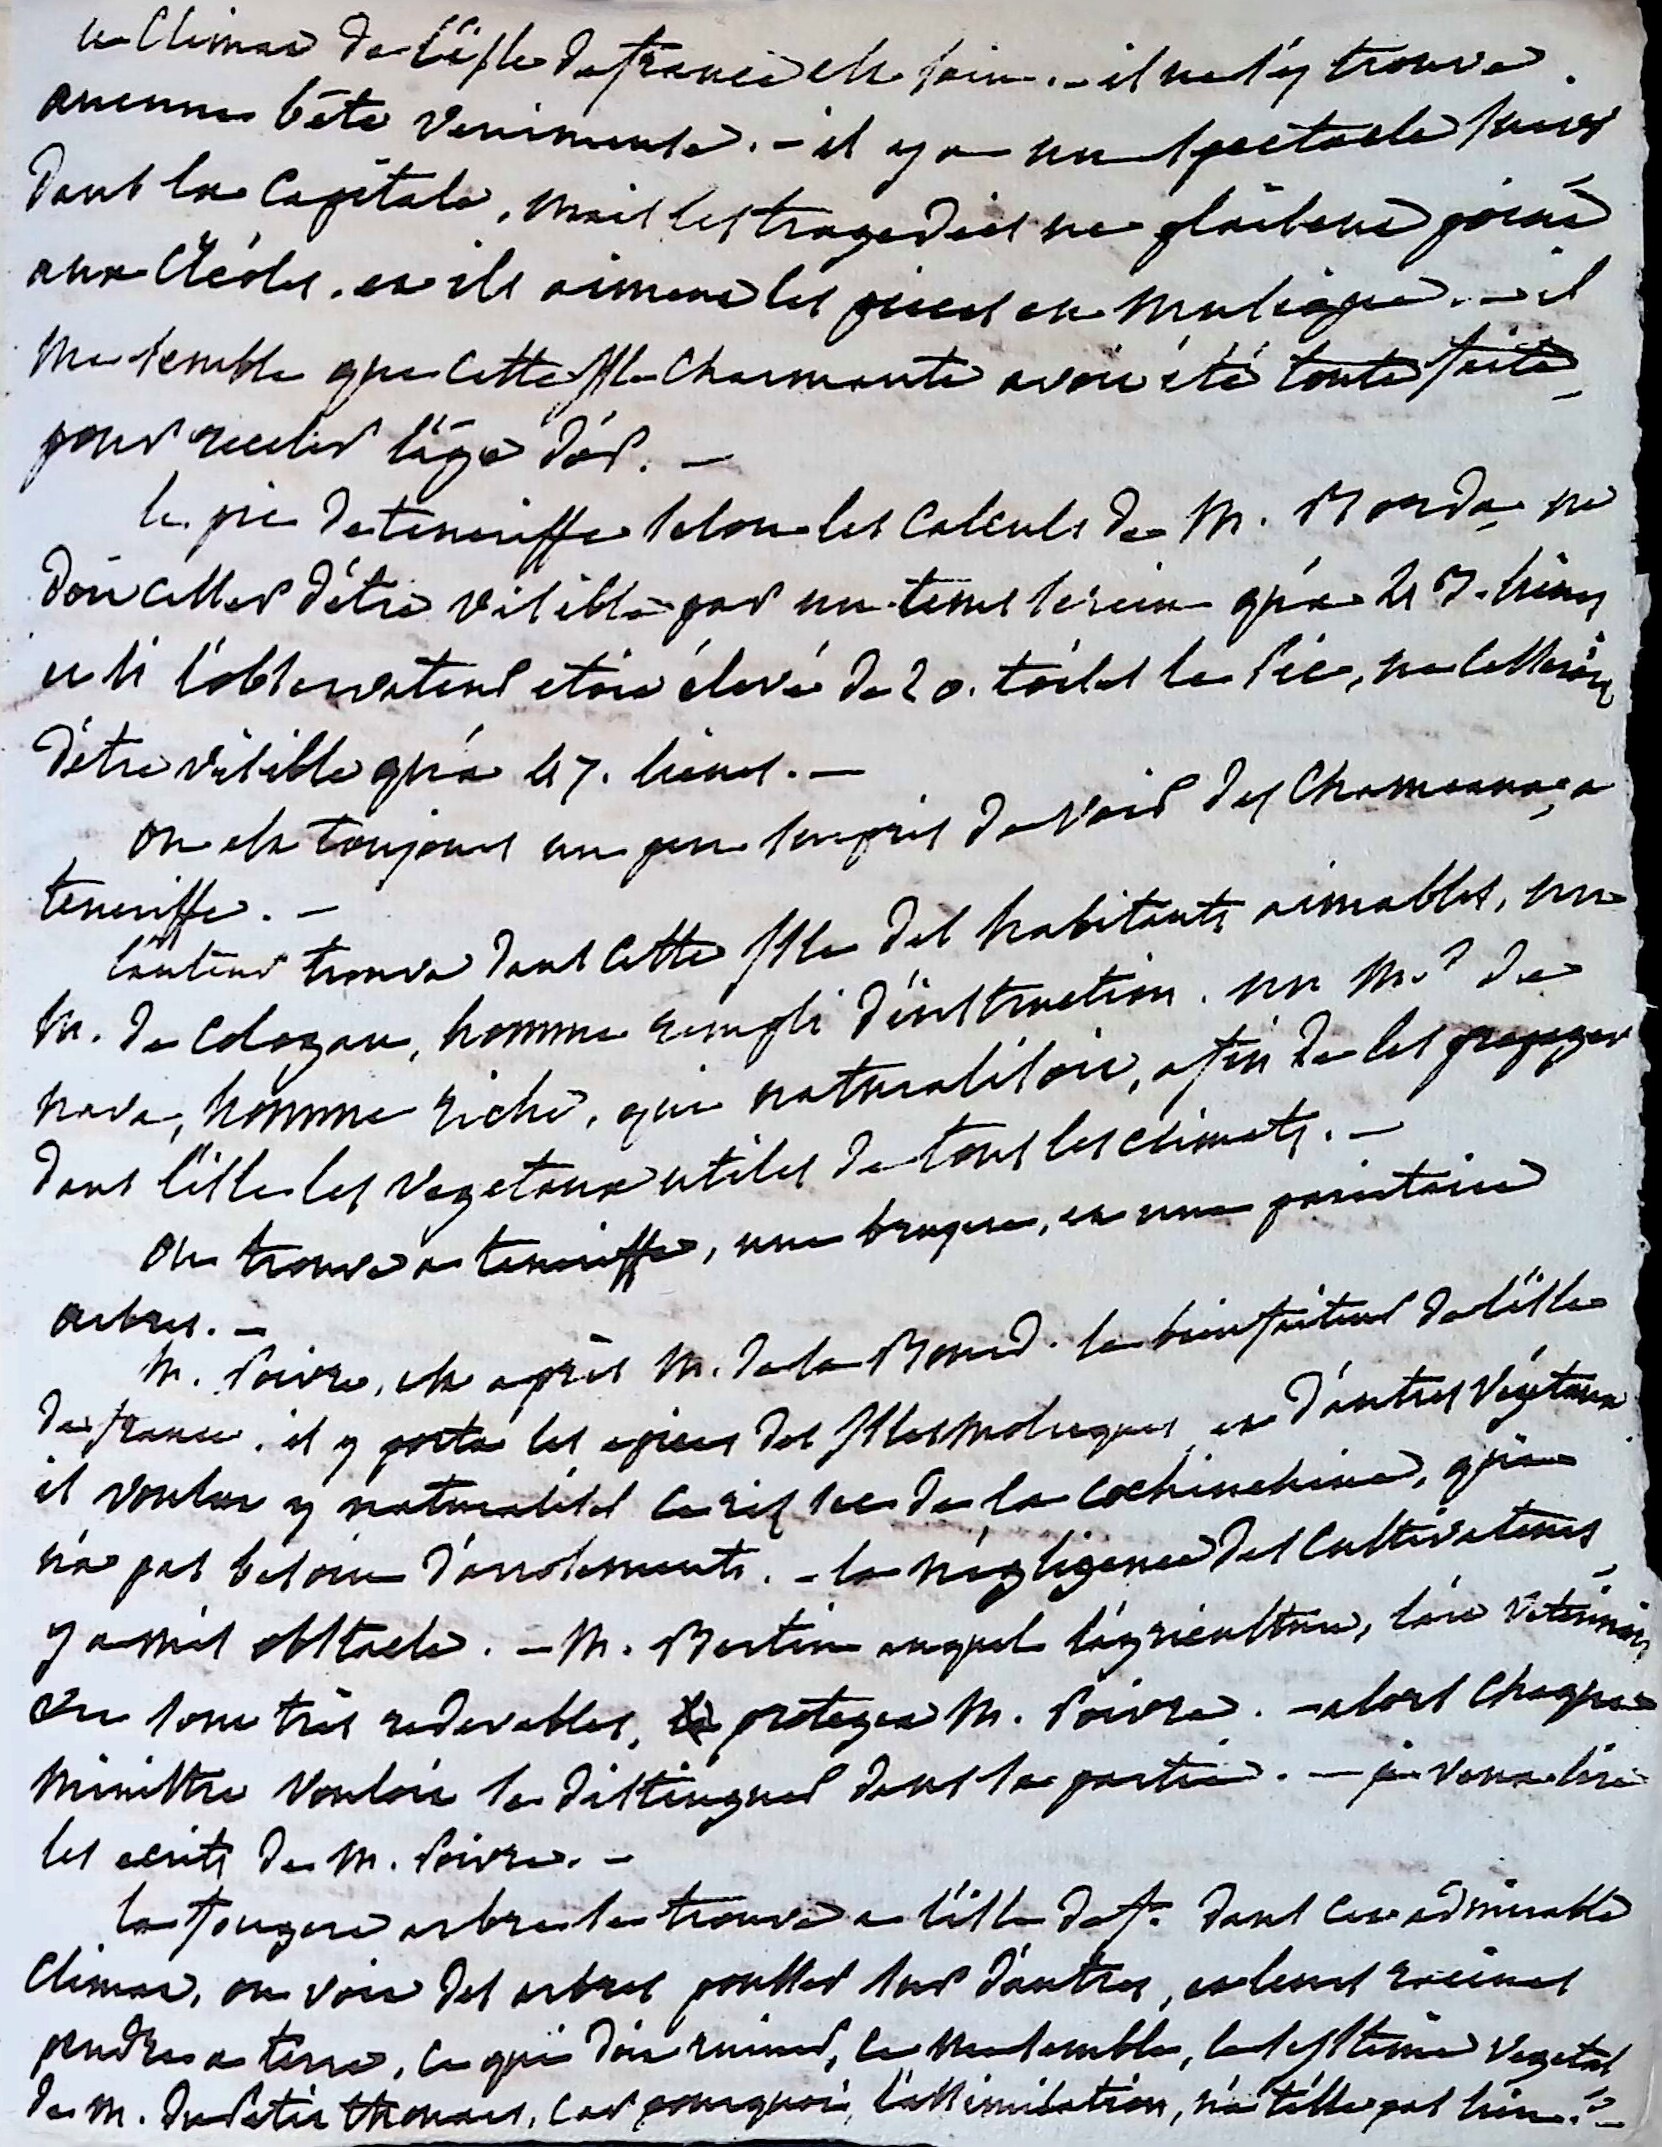 le Climat de l'isle de france est sain. - il ne s'y trouve
aucune bête venimeuse. - il y a un spectacle suivi
dans la capitale, mais les tragedies ne plaisent point
aux Créoles. et ils aiment les pieces en musique. - il
me semble que cette isle charmante avoit été toute faite
pour receler l'âge d'or. -
le pic de teneriffe selon les calculs de M. Borda, ne
doit cesser d'être visible par un tems serein qu'a lieues
et si l'observateur etoit élevé de 20. toises le Pic, ne cesseroit
d'être visible qu'à 47. lieues. -
on est toujours un peu surpris de voir des Chameaux, a
teneriffe. -
l'auteur trouva dans cette isle des habitants aimables, un
M. de Cologan, homme rempli d'instruction. un M. de
nava, homme riche, qui naturalisoit, afin de les propager
dans l'isle les vegetaux utiles de tous les climats. -
on trouve a teneriffe, une bruyere, et une parietaire
arbres. -
M. Poivre, est après M. de la Bourd. le bienfaiteur de l'isle
de france. il y porta les epices des isles moluques et d'autres végétaux
il voulut y naturaliser le ris sec de la cochinchine, qui
n'a pas besoin d'arrosements. - la négligence des cultivateurs
y a mis obstacle. - M. Bertin auquel l'agriculture, l'art
sont très redevables, protegea M. Poivre. - alors chaque
ministre vouloit se distinguer dans sa partie. - je veux lire
les ecrits de M. Poivre. -
la fougere arbre se trouve a l'isle de fr. dans cet admirable
climat, on voit des arbres pousser sur d'autres, et leurs racines
pendre a terre, ce qui doit ruiner, ce me semble, le systême vegetal
de M. du Petit thouars, car pourquoi, l'assimilation, n'a t'elle pas lieu. -